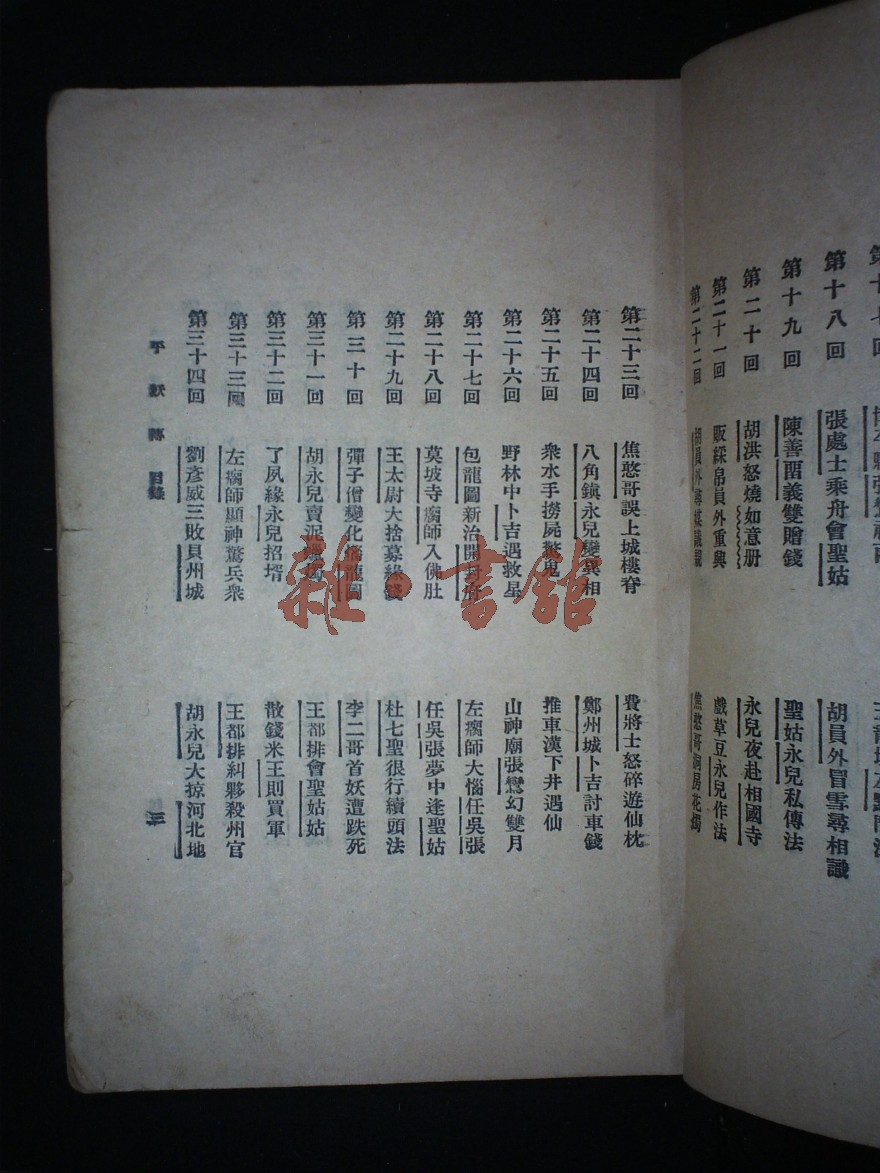 第十八回　張處士乘舟會聖姑　胡員外冒雪尋相識
第十九回　陳善畱義雙贈錢　聖姑永兒私傳法
第二十回　胡洪怒燒如意册　永兒夜赴相國寺
第二十一回　販綵帛員外重興　戲草豆永兒作法
第二十二回　胡員外尋媒議親　焦憨哥洞房花燭
第二十三回　焦憨哥誤上城樓脊　費將士怒碎遊仙枕
第二十四回　八角鎮永兒變異相　鄭州城卜吉討車錢
第二十五回　衆水手撈屍驚鬼　推車漢下井遇仙
第二十六回　野林中卜吉遇救星　山神廟張鸞幻雙月
第二十七回　包龍圖新治開封府　左瘸師大惱任吳張
第二十八回　莫坡寺瘸師入佛肚　任吳張夢中逢聖姑
第二十九回　王太尉大捨募緣錢　杜七聖很行續頭法
第三十回　彈子僧變化惱龍圖　李二哥首妖遭跌死
第三十一回　胡永兒賣泥蠟燭　王都排會聖姑姑
第三十二回　夙緣永兒招壻　散錢米王則買軍
第三十三回　左瘸師顯神驚兵衆　王都排糾夥殺州官
第三十四回　劉彥威三敗貝州城　胡永兒大掠河北地
平妖傳　目錄　三
雜·書館